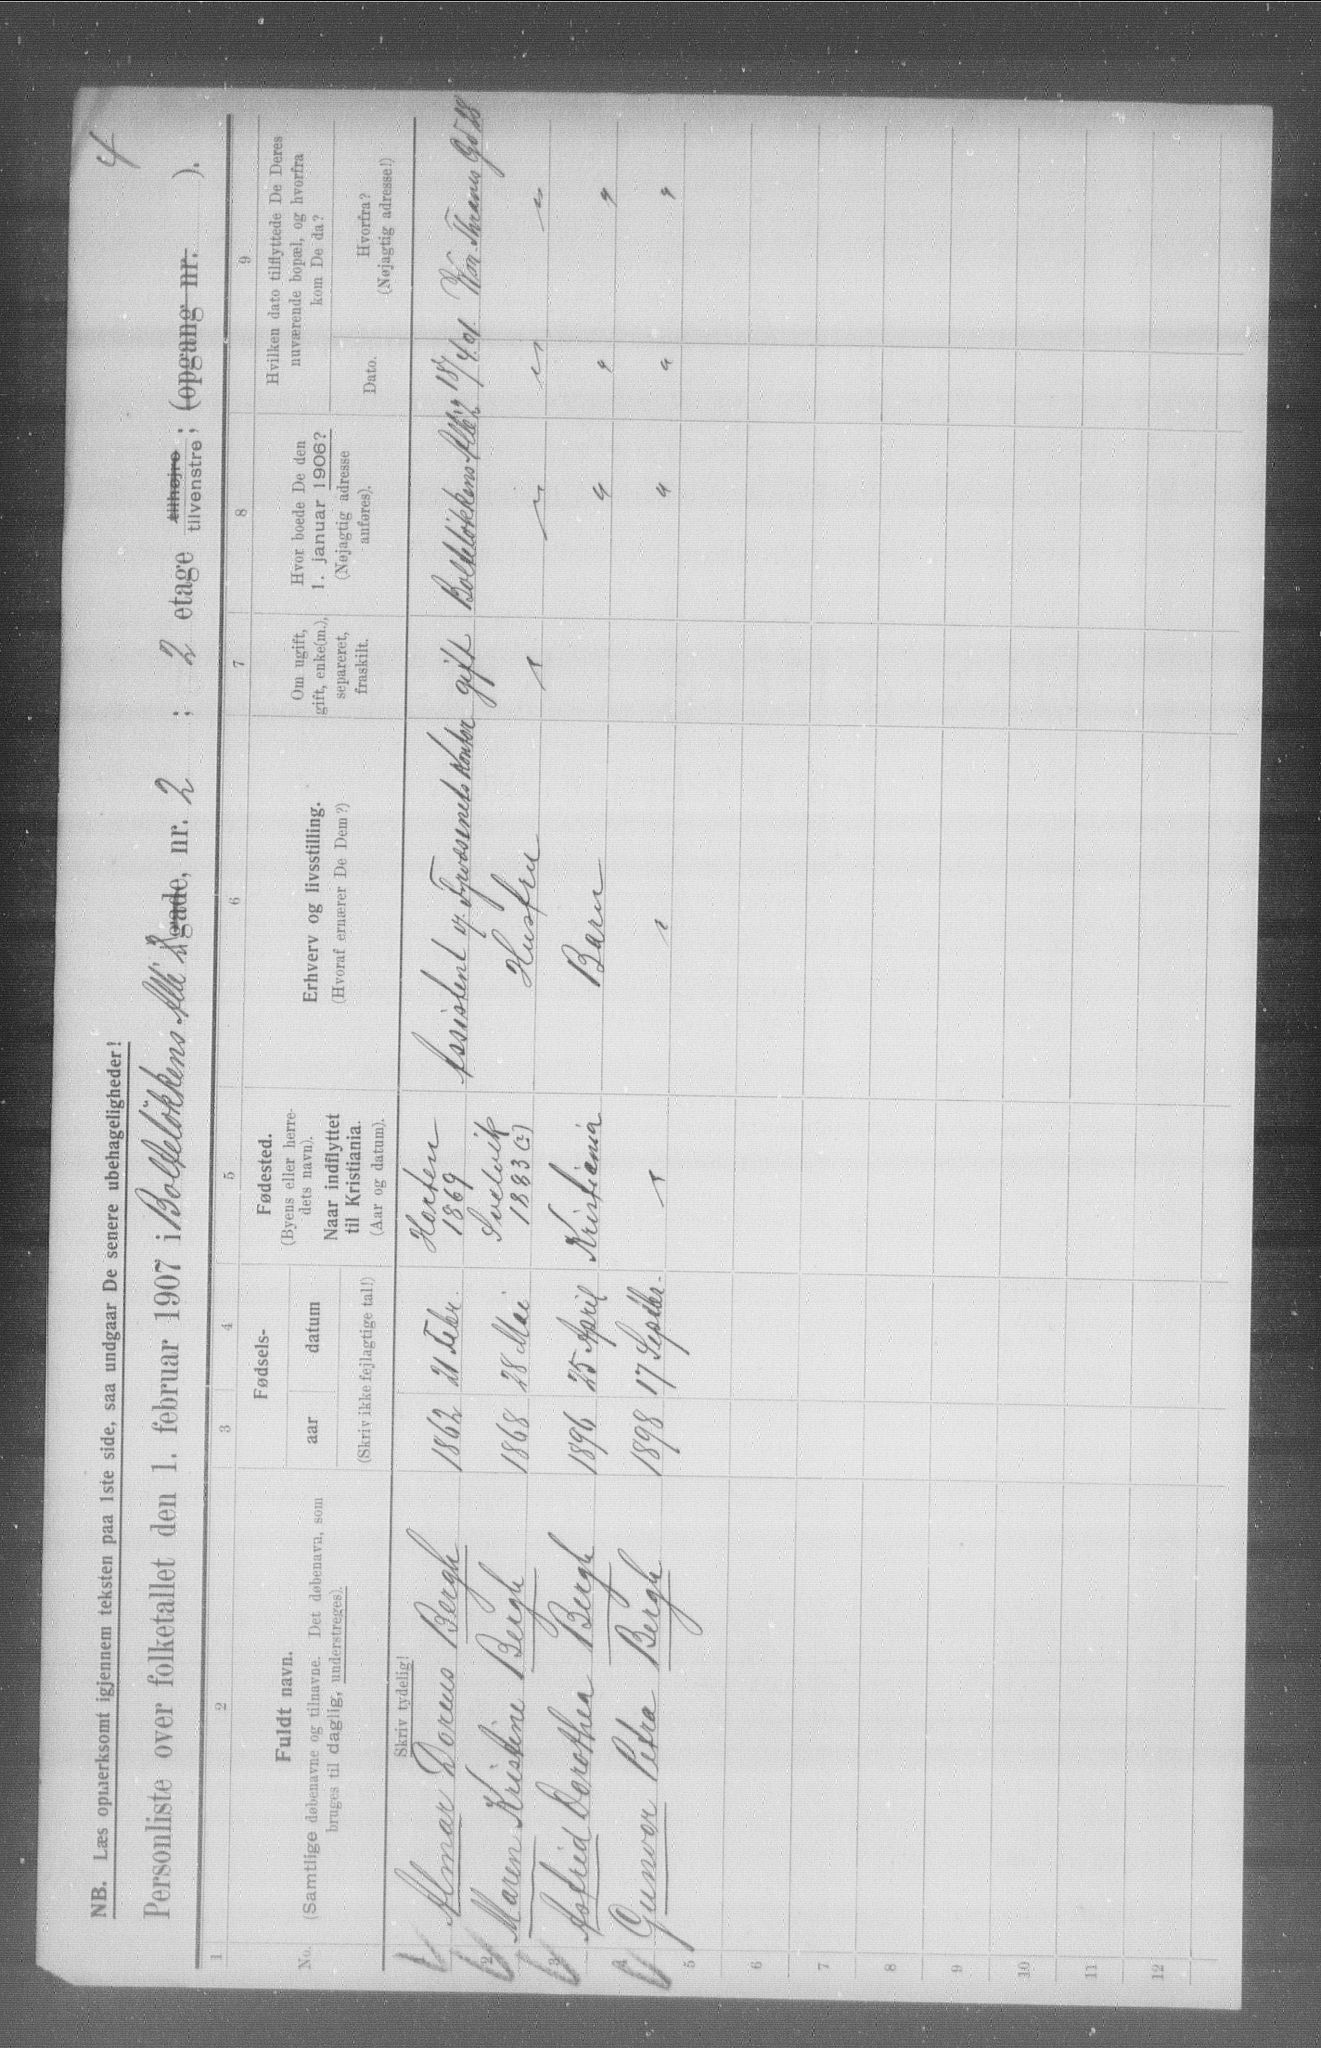 4
NB. Læs opmerksomt igjennem teksten paa 1ste side, saa undgaar De senere ubehageligheder!
Personliste over folketallet den 1. februar 1907 i Bolteløkkens Allé gade, nr. 2 ; 2 etage tilhøjre tilvenstre ; (opgang nr. ).
1 2 3 4 5 6 7 8 9
No.
Fuldt navn.
(Samtlige døbenavne og tilnavne. Det døbenavn, som
bruges til daglig, understreges).
Fødsels-
aar datum
(Skriv ikke fejlagtige tal!)
Fødested.
(Byens eller herre-
dets navn).
Naar indflyttet
til Kristiania.
(Aar og datum).
Erhverv og livsstilling.
(Hvoraf ernærer De Dem?)
Om ugift,
gift, enke(m.),
separeret,
fraskilt.
Hvor boede De den
1. januar 1906?
(Nøjagtig adresse
anføres).
Hvilken dato tilflyttede De Deres
nuværende bopæl, og hvorfra
kom De da?
Dato.
Hvorfra?
(Nøjagtig adresse!)
Skriv tydelig!
1 Almar Doreus Bergh 1862 21 Febr. Horten 1869 Assistent v. Fyrvæsenets Kontor gift Bolteløkkens Allé 2 18/4 01 Wm. Thranes Gd 28
2 Maren Kristine Bergh 1868 28 Mai Svelvik 1883 (?) Husfru " " " "
3 Astrid Dorothea Bergh 1896 25 April Kristiania Barn " " "
4 Gunvor Petra Bergh 1898 17 Septbr. " " " " "
5
6
7
8
9
10
11
12